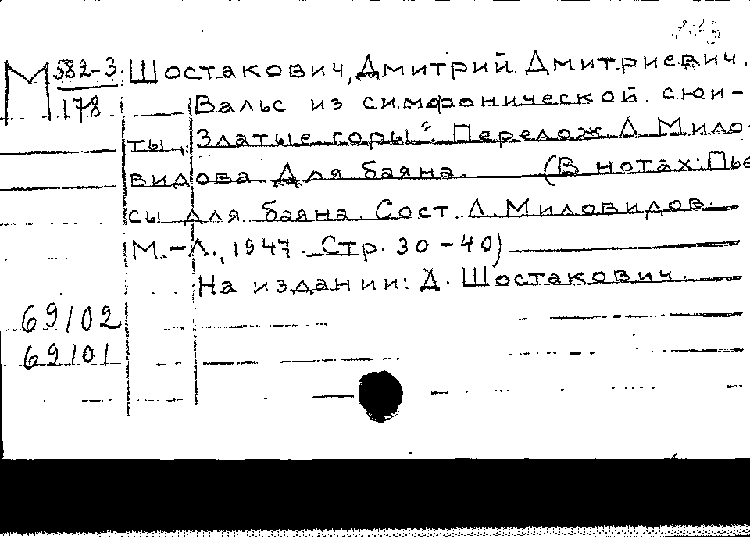 М 582-3 Шостакович, Дмитрий Дмитриевич.
178 Вальс из симфонической сюи-
ты „Златые горы“. Перелож. Л. Мило-
видова. Для баяна. (В нотах: Пье-
сы для баяна. Сост. Л. Миловидов.
М.-Л., 1947. Стр. 30-40)
На издании: Д. Шостакович.
69102
69101